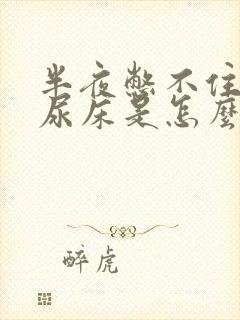 半夜憋不住
尿床是怎麼
醉虎